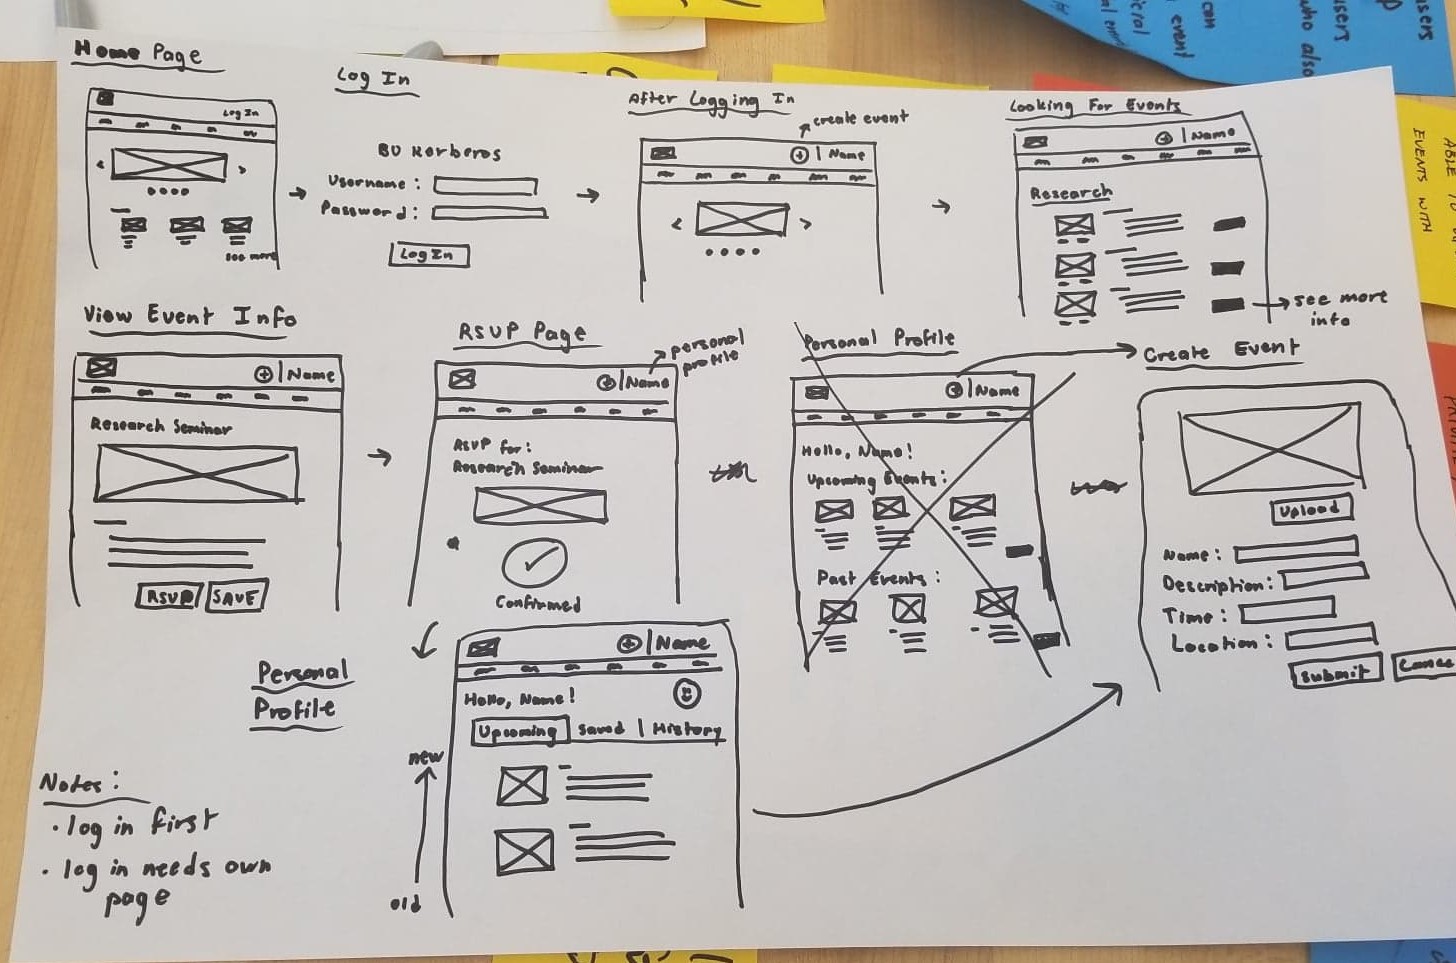 Home Page
Log In
see more
Log In
BU Kerberos
Username :
Password :
Log In
After Logging In
create event
| Name
Looking For Events
| Name
Research
see more
info
View Event Info
| Name
Research Seminar
RSVP
SAVE
RSVP Page
personal
profile
| Name
RSVP for:
Research Seminar
Confirmed
Personal Profile
| Name
Hello, Name!
Upcoming Events:
Past Events:
Create Event
Upload
Name:
Description:
Time:
Location:
Submit
Personal
Profile
| Name
Hello, Name!
Upcoming | Saved | History
new
old
Notes:
· log in first
· log in needs own
page
users
can
event
who also
EVENTS WITH